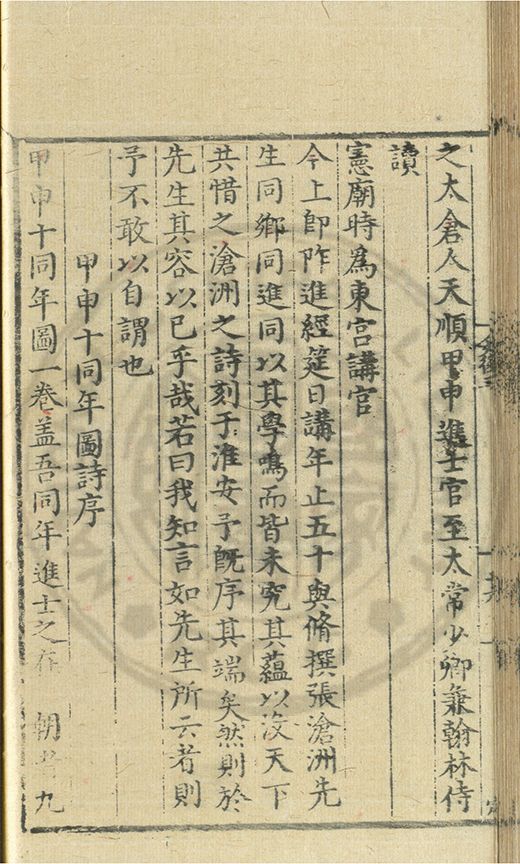 之太倉人天順甲申進士官至太常少卿兼翰林侍
讀
憲廟時爲東宮講官
今上卽阼進經筵日講年止五十與脩撰張滄洲先
生同鄉同進同以其學鳴而皆未究其蘊以沒天下
共惜之滄洲之詩刻于淮安予旣序其端矣然則於
先生其容以已乎哉若曰我知言如先生所云者則
予不敢以自謂也
甲申十同年圖詩序
甲申十同年圖一卷盖吾同年進士之在 朝者九